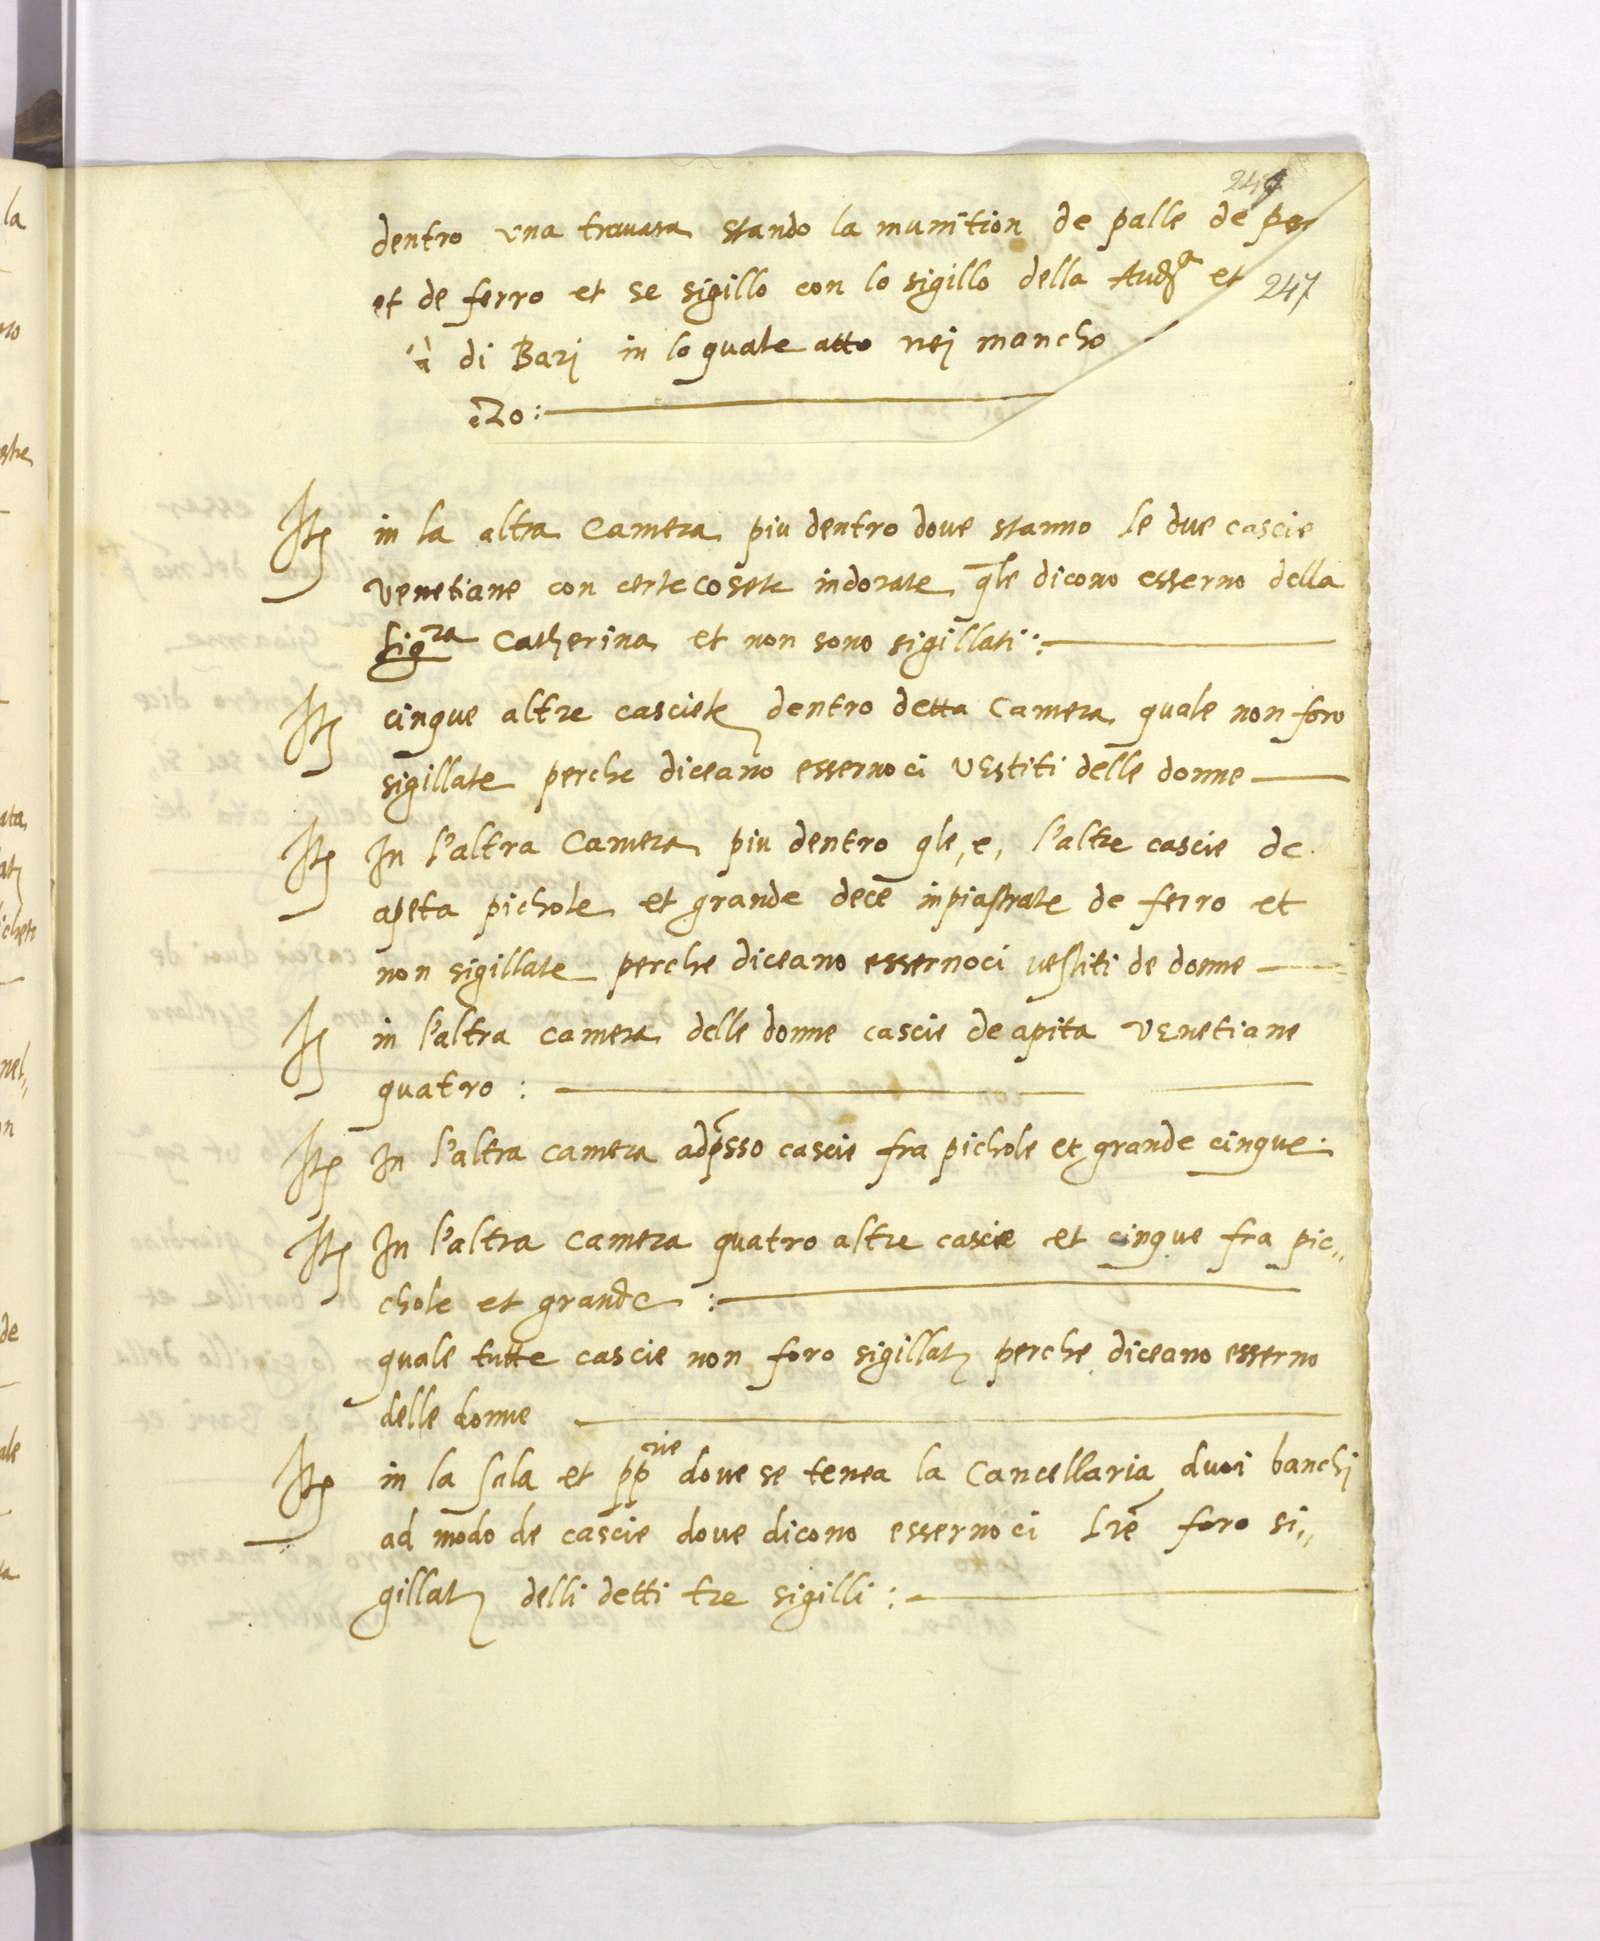 247
dentro una travara stando la munition de palle de
et de ferro et se sigillo con lo sigillo della Audᵃ et 247
di Bari in lo quale atto nej mancho
ezo:
Itē in la altra camera piu dentro dove stanno le due cascie
venetiane con certe cosete indorate qle dicono esserno della
Sigra Catherina et non sono sigillati:
Itē cinque altre casciete dentro detta camera quale non foro
sigillate perche diceano essernoci vestiti delle donne
Itē In l'altra camera piu dentro qle, e, l'altre cascie de
apeta pichole et grande dece inpiastrate de ferro et
non sigillate perche diceano essernoci vestiti de donne
Itē in l'altra camera delle donne cascie de apita venetiane
quatro:
Itē In l'altra camera adpsso cascie fra pichole et grande cinque.
Itē In l'altra camera quatro altre cascie et cinque fra pic,,
chole et grande:
quale tutte cascie non foro sigillate perche diceano esserno
delle donne
Itē in la sala et pprie dove se tenea la Cancellaria duoi banchj
ad modo de cascie dove dicono essernoci Lrē foro si,,
gillate delli detti tre sigilli: